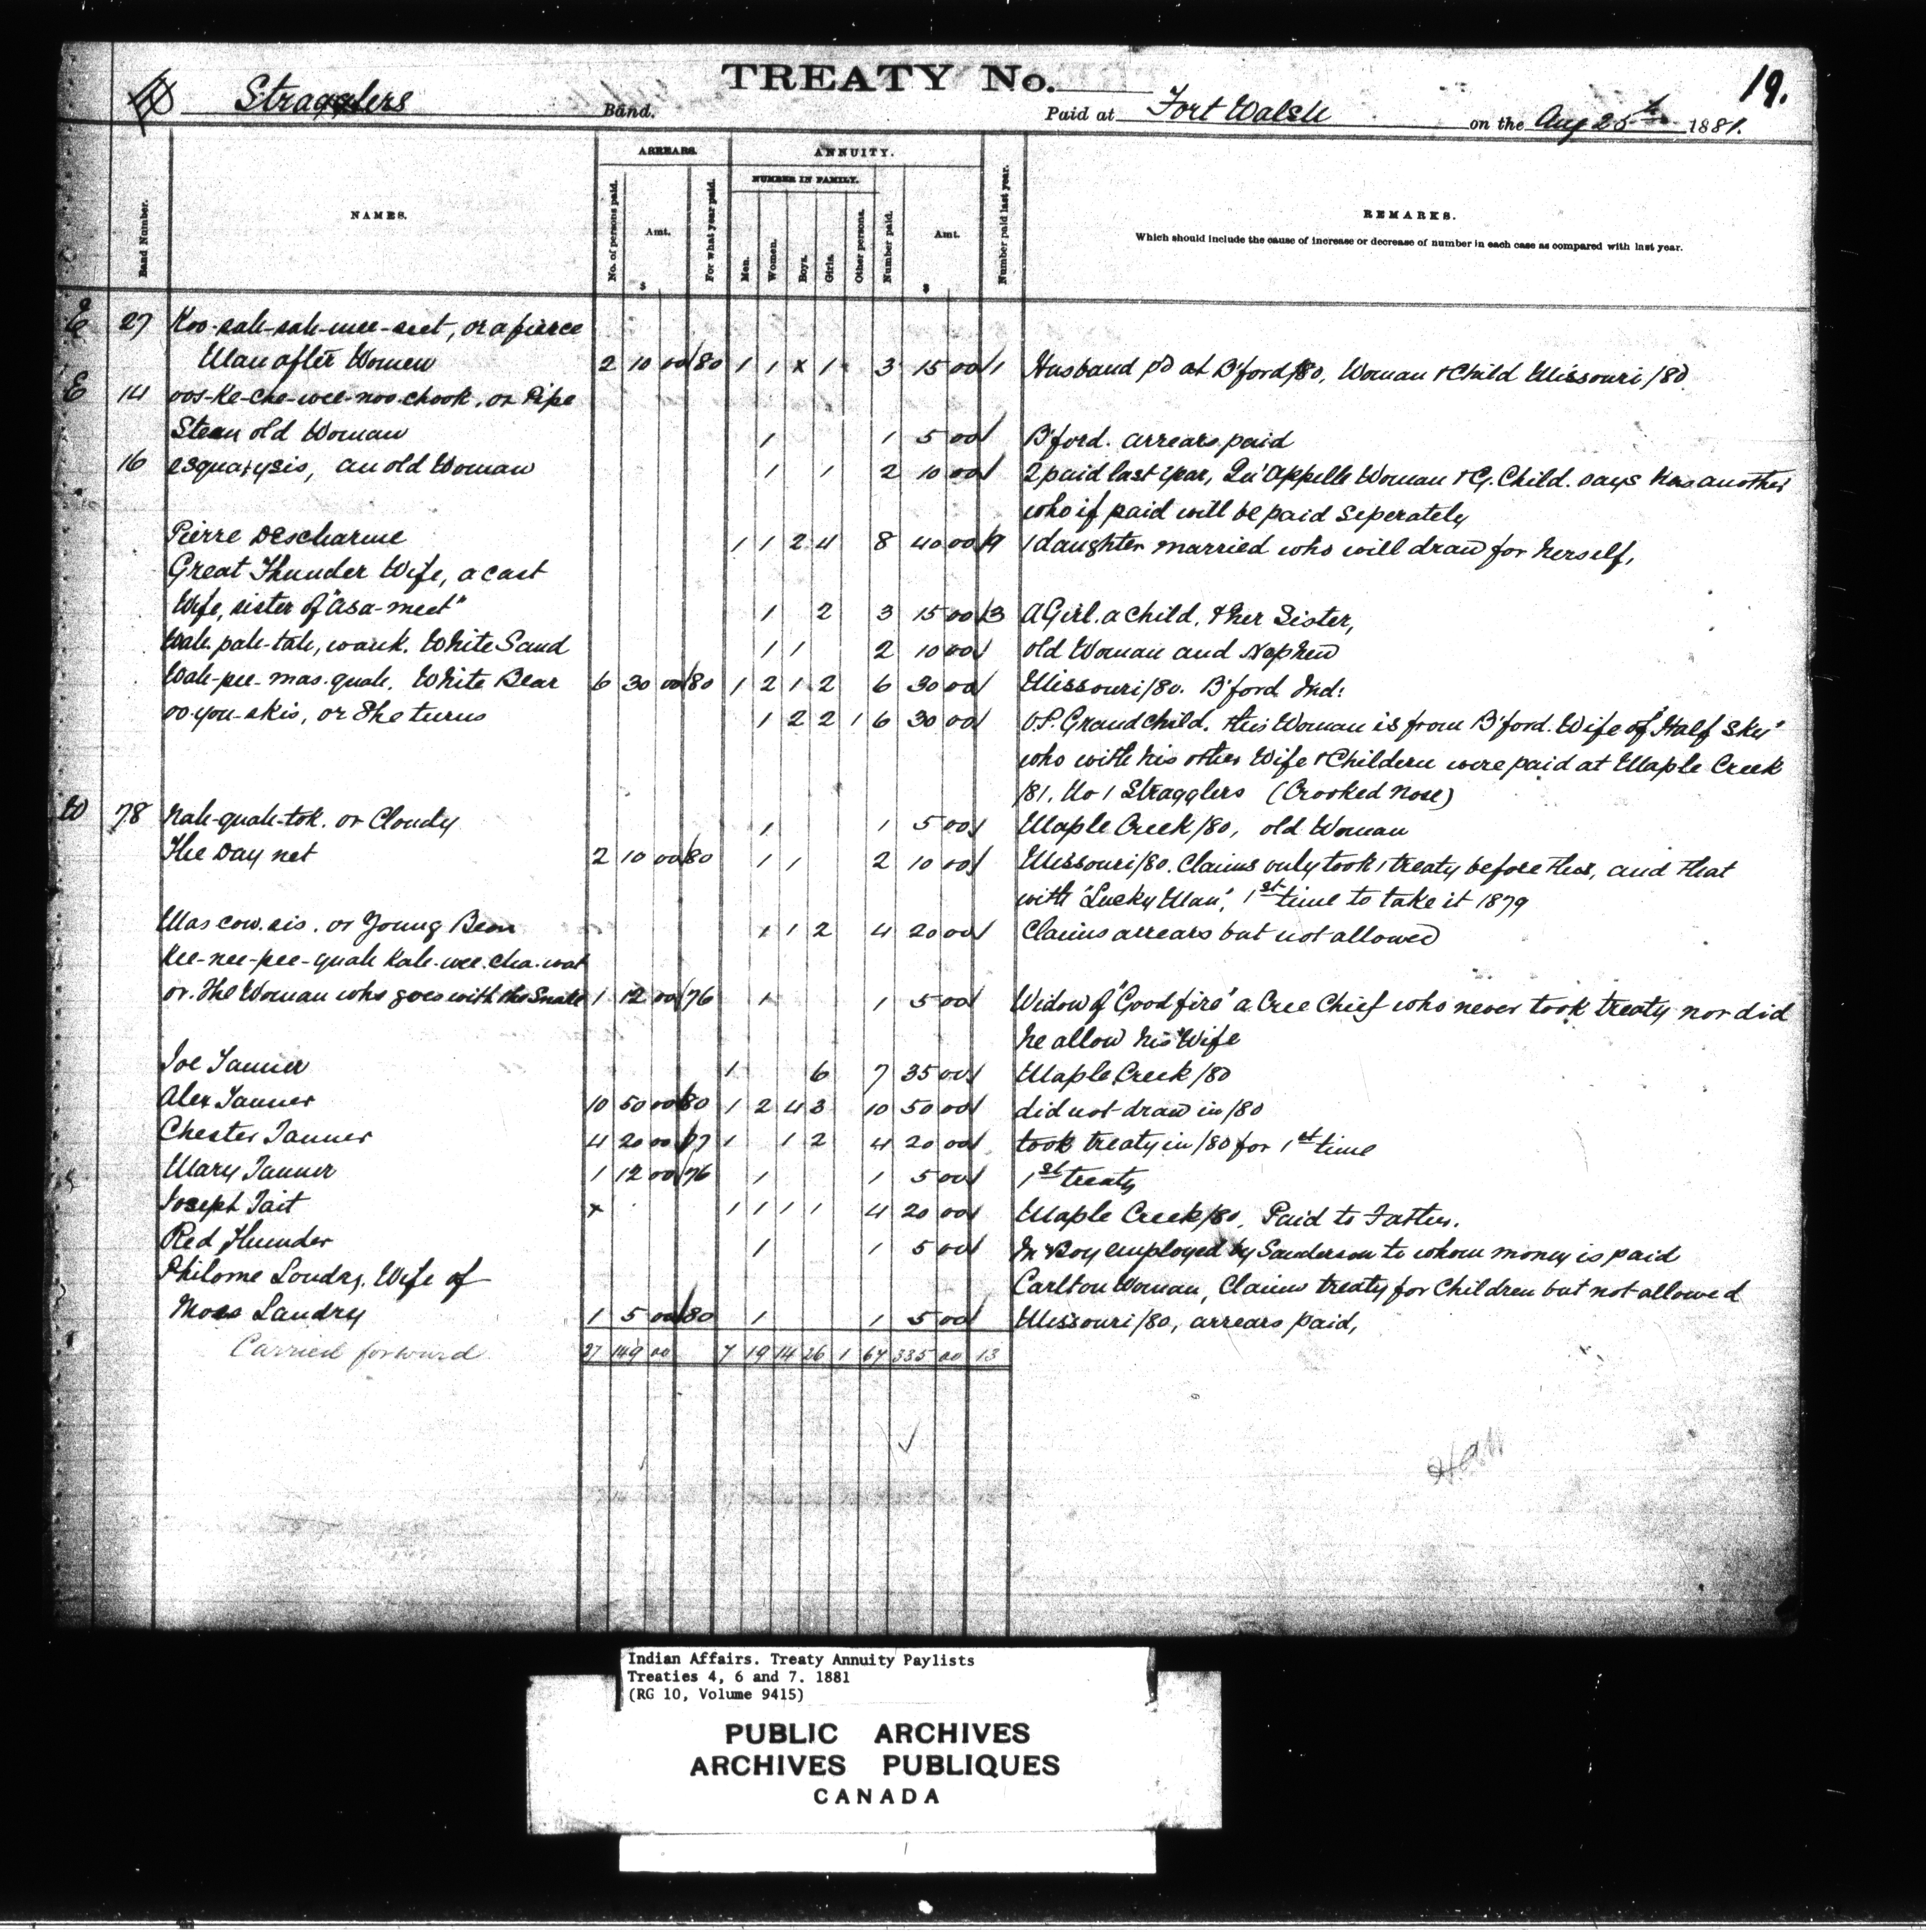 TREATY No.
19.
Stragglers Band. Paid at Fort Walsh on the Aug 25th 1881.
ARREARS. ANNUITY.
NUMBER IN FAMILY.
Band Number. NAMES. No. of persons paid. Amt. $ For what year paid. Men. Women. Boys. Girls. Other persons. Number paid. Amt. $ Number paid last year. REMARKS.
Which should include the cause of increase or decrease of number in each case as compared with last year.
E 27 Koo-sah-sah-mee-seet, or a fierce
Man after Women 2 10 00 /80 1 1 x 1 3 15 00 1 Husband pd at B'ford/80, Woman & Child Missouri/80
E 14 oos-Ke-che-wee-noo-chook, or Pipe
Stem old Woman 1 1 5 00 B'ford. arrears paid
16 esquaysis, an old Woman 1 1 2 10 00 2 paid last year, Qu'Appelle Woman & G. Child. says has another
who if paid will be paid seperately
Pierre Descharme 1 1 2 4 8 40 00 9 1 daughter married who will draw for herself,
Great Thunder Wife, a cast
Wife, sister of "asa-meet" 1 2 3 15 00 3 A Girl. a child. & her Sister,
Wah-pah-tah, wauk. White Sand 1 1 2 10 00 old Woman and Nephew
Wah-pee-mas-quah. White Bear 6 30 00 /80 1 2 1 2 6 30 00 Missouri/80. B'ford Ind:
oo-you-skis, or She turns 1 2 2 1 6 30 00 O.P. Grandchild. this Woman is from B'ford. Wife of "Half Sky"
who with his other Wife & Childern were paid at Maple Creek
/81. No 1 Stragglers (Crooked Nose)
W 78 Nah-quah-tok. or Cloudy 1 1 5 00 Maple Creek/80, old Woman
The Day net 2 10 00 /80 1 1 2 10 00 Missouri/80. Claims only took 1 treaty before this, and that
with "Lucky Man", 1st time to take it 1879
Mas cow-sis. or Young Bear 1 1 2 4 20 00 Claims arrears but not allowed
Kee-nee-pee-quah Kah-wee-cha-wat
or The Woman who goes with the Snake 1 12 00 /76 1 1 5 00 Widow of "Good fire" a Cree Chief who never took treaty nor did
he allow his Wife
Joe Tanner 1 6 7 35 00 Maple Creek/80
Alex Tanner 10 50 00 /80 1 2 4 3 10 50 00 did not draw in/80
Chester Tanner 4 20 00 /77 1 1 2 4 20 00 took treaty in/80 for 1st time
Mary Tanner 1 12 00 /76 1 1 5 00 1st treaty
Joseph Tait x 1 1 1 1 4 20 00 Maple Creek/80. Paid to Father.
Red Thunder 1 1 5 00 Boy employed by Sanderson to whom money is paid
Philome Loudry, Wife of Carlton Woman, Claims treaty for Children but not allowed
Moses Landry 1 5 00 /80 1 1 5 00 Missouri/80, arrears paid,
Carried forward 27 149 00 7 19 14 26 1 67 335 00 13
Indian Affairs. Treaty Annuity Paylists
Treaties 4, 6 and 7. 1881
(RG 10, Volume 9415)
PUBLIC ARCHIVES
ARCHIVES PUBLIQUES
CANADA